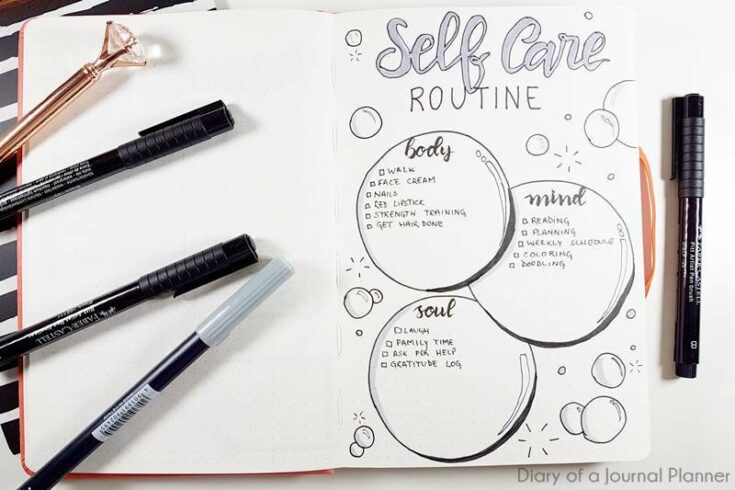 Self Care
ROUTINE
body
WALK
FACE CREAM
NAILS
RED LIPSTICK
STRENGTH TRAINING
GET HAIR DONE
mind
READING
PLANNING
WEEKLY SCHEDULE
COLORING
DOODLING
soul
LAUGH
FAMILY TIME
ASK FOR HELP
GRATITUDE LOG
FABER-CASTELL
FABER-CASTELL
Pitt Artist Pen brush
B
Diary of a Journal Planner